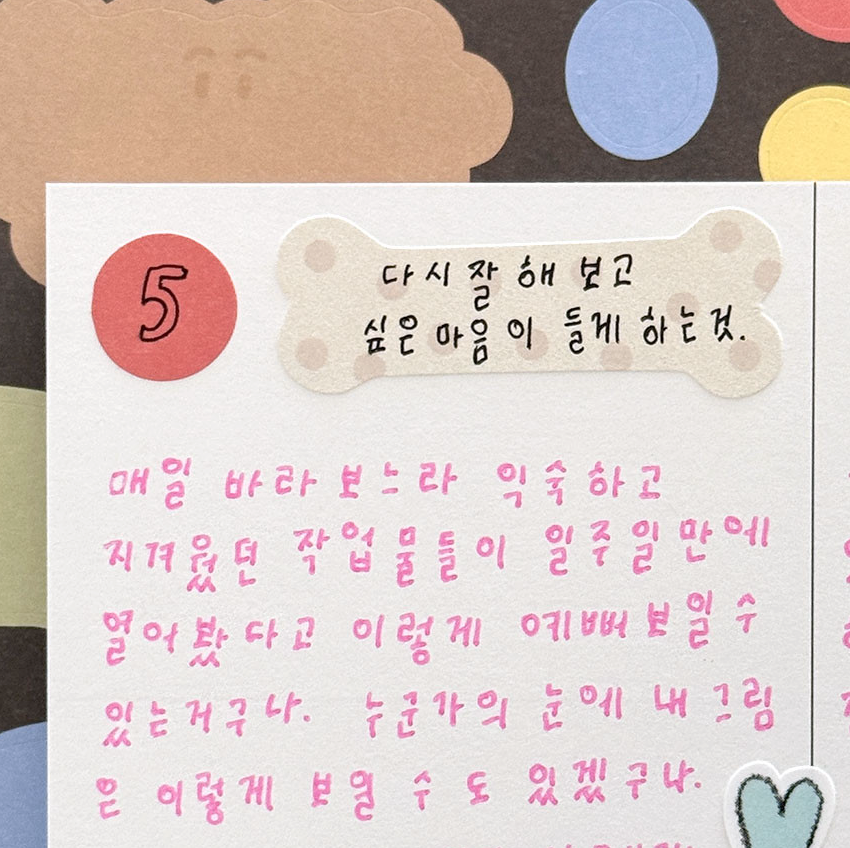 5
다시 잘 해 보고
싶은 마음이 들게 하는 것.
매일 바라보느라 익숙하고
지겨웠던 작업물들이 일주일만에
열어봤다고 이렇게 예뻐보일 수
있는거구나. 누군가의 눈에 내 그림
은 이렇게 보일 수도 있겠구나.